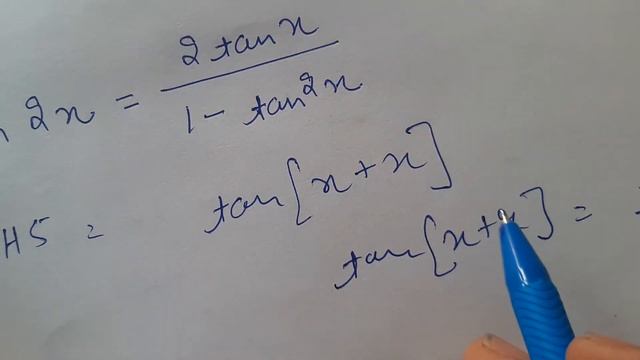 2x = 2 tan x / 1 - tan²x
HS = tan[x + x]
tan[x + x] =